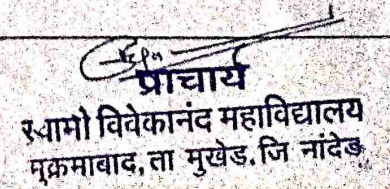 प्राचार्य
स्वामी विवेकानंद महाविद्यालय
मुक्रमाबाद, ता मुखेड. जि नांदेड